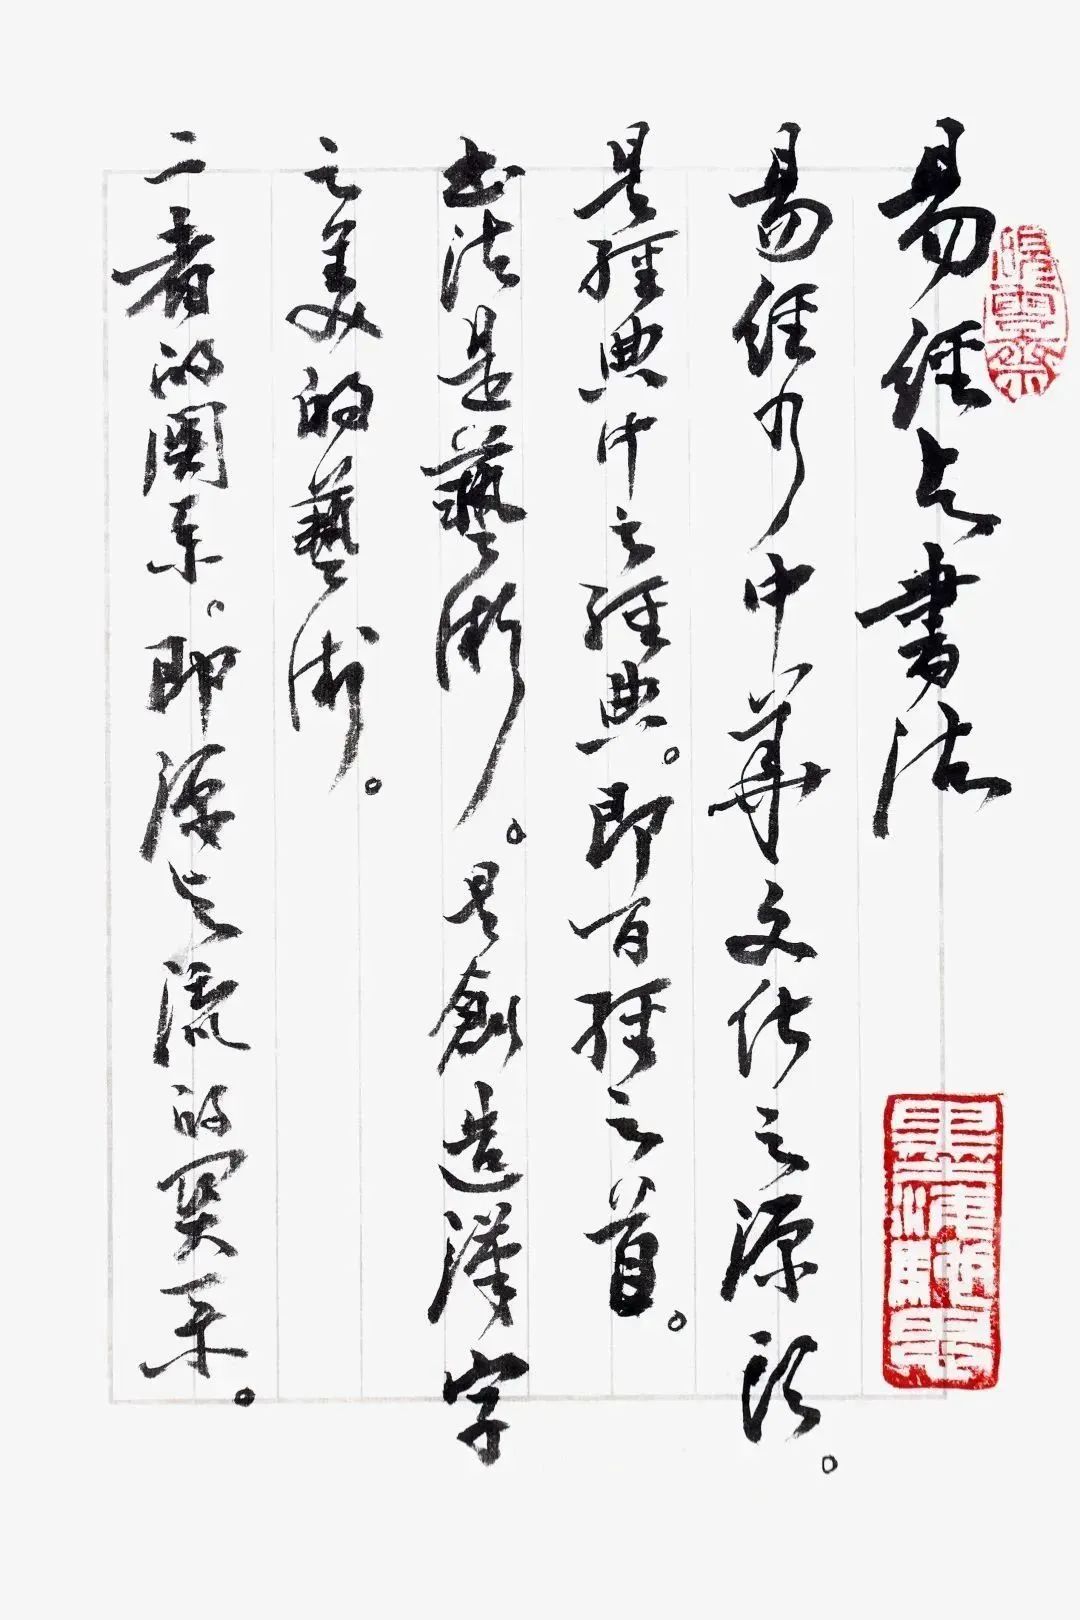 易經与書法
易經乃中華文化之源頭。
是經典中之經典。即百經之首。
书法是藝術。是創造漢字
之美的藝術。
二者的関系。即源与流的関系。